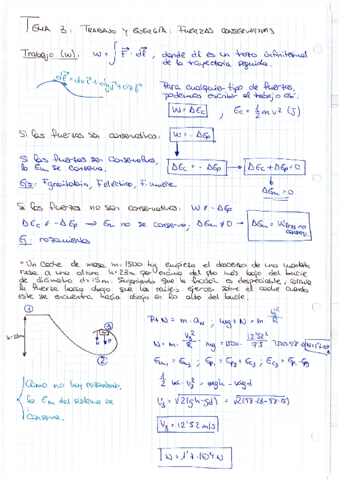 TEMA 3: TRABAJO Y ENERGÍA: FUERZAS CONSERVATIVAS
Trabajo (W): W = ∫ F⃗ · dl⃗, donde dl es un trozo infinitesimal
de la trayectoria seguida.
dl⃗ = dx i⃗ + dy j⃗ + dz k⃗
Para cualquier tipo de fuerzas,
podemos escribir el trabajo así:
W = ΔEc , Ec = 1/2 m v² (J)
Si las fuerzas son conservativas: W = - ΔEp
Si las fuerzas son conservativas,
la Em se conserva.
ΔEc = - ΔEp → ΔEc + ΔEp = 0
ΔEm = 0
Ej: Fgravitatoria, Feléctrica, F. muelle
Si las fuerzas no son conservativas: W ≠ - ΔEp
ΔEc ≠ - ΔEp → Em no se conserva, ΔEm ≠ 0 → ΔEm = W
Ej: rozamientos
* Un coche de masa m = 1500 kg empieza el descenso de una montaña
rusa a una altura h = 23m por encima del pto más bajo del bucle
de diámetro d = 15m. Suponiendo que la fricción es despreciable, calcula
la fuerza hacia abajo que los raíles ejercen sobre el coche cuando
este se encuentra hacia abajo en lo alto del bucle.
①
③
②
h = 23m
P
P + N = m · aN ; mg + N = m · v²/R
N = m · v3²/R - mg = 1500 · 12'52²/7'5
Em1 = Em3 ; Ep1 = Ep3 + Ec3 ; Ec3 = Ep1 - Ep3
1/2 m · v3² = mgh - mgd
V3 = √2(gh - gd) = √2(9'8·23 - 9'8·15)
V3 = 12'52 m/s
N = 1'7 · 10⁴ N
Como no hay rozamiento,
la Em del sistema se
conserva.